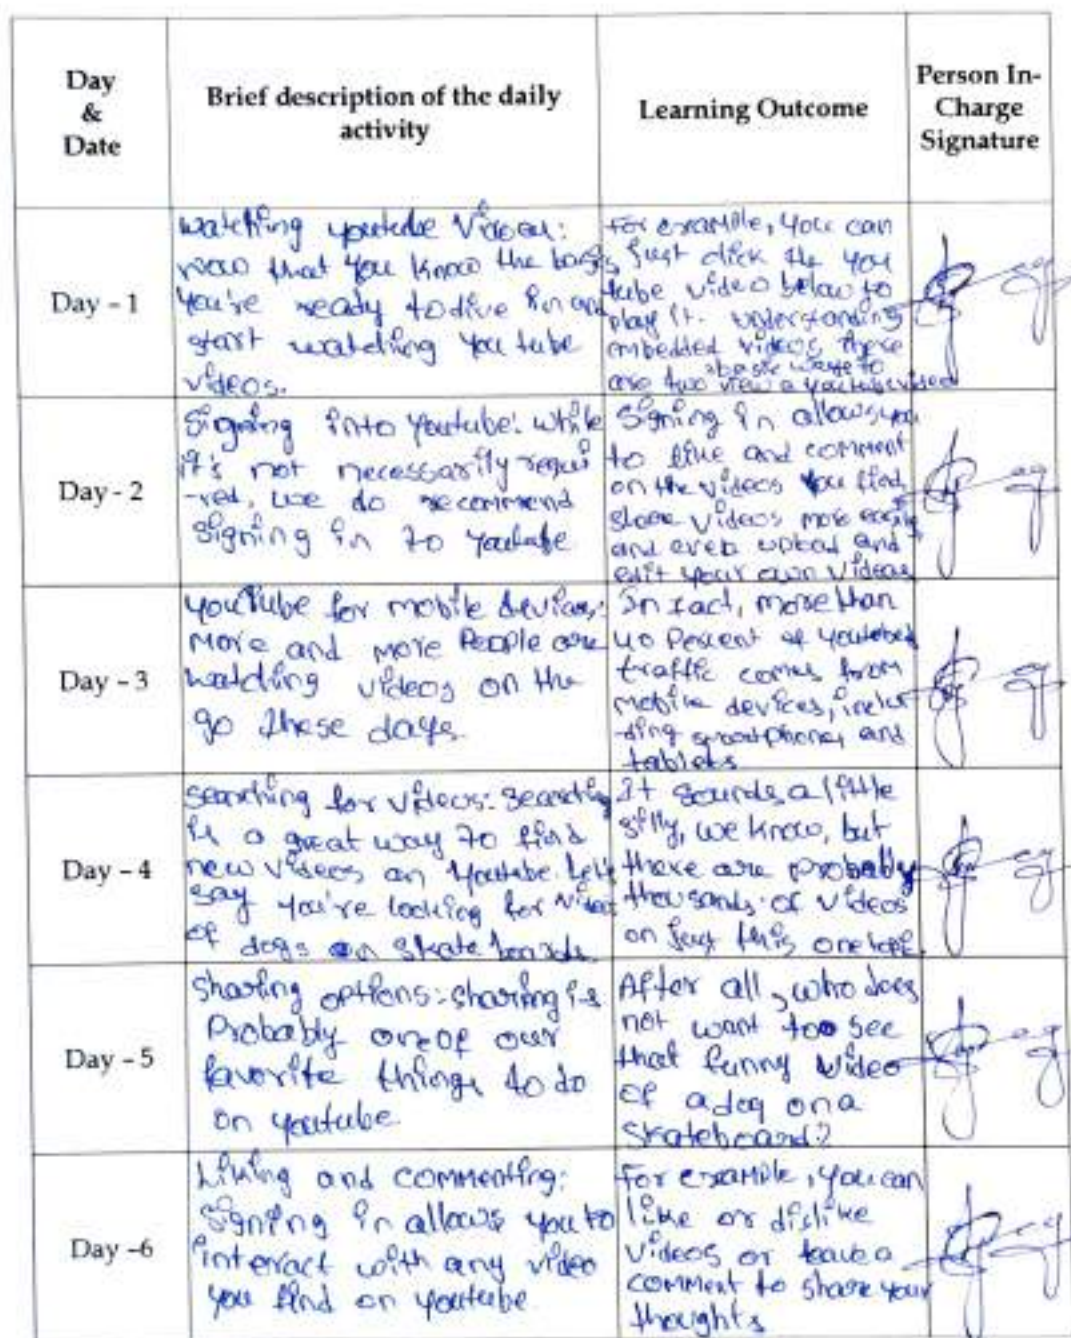 Day
&
Date
Brief description of the daily
activity
Learning Outcome
Person In-
Charge
Signature
Day - 1
watching youtube Videos:
now that you know the basics,
you're ready to dive in and
start watching You tube
videos.
For example, you can
just click the you
tube video below to
play it. understanding
embedded videos there
are two basic ways to
view a youtube video
Day - 2
Signing into Youtube: while
it's not necessarily requi
-red, we do recommend
signing in to Youtube
Signing in allows you
to like and comment
on the videos you find,
share videos more easily
and even upload and
edit your own videos
Day - 3
YouTube for mobile devices:
More and more People are
watching videos on the
go these days.
In fact, more than
40 Percent of youtube's
traffic comes from
mobile devices, inclu
-ding smartphones and
tablets
Day - 4
searching for videos: Searching
is a great way to find
new videos on Youtube. Let's
say you're looking for videos
of dogs on skate boards.
It sounds a little
silly, we know, but
there are probably
thousands of videos
on just this one topic
Day - 5
Sharing options: sharing is
Probably one of our
favorite things to do
on youtube
After all, who does
not want too see
that funny video
of a dog on a
skateboard?
Day -6
Liking and commenting:
Signing in allows you to
interact with any video
you find on youtube
For example, you can
like or dislike
videos or leave a
comment to share your
thoughts